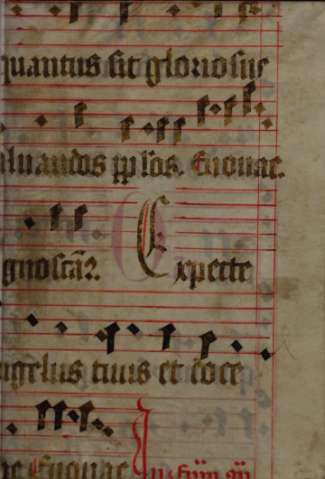 quantus sit gloriosus
aluandos pp̄los. Euouae.
gnoscāt̉. Expecte
ngelus tuus et doce
ne Euouae